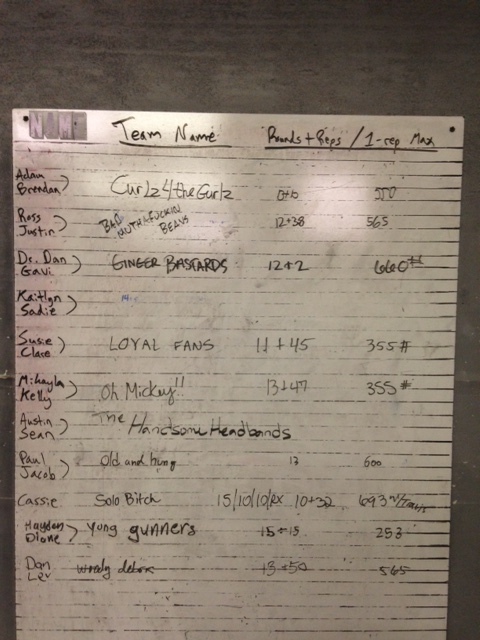 Team Name Rounds + Reps / 1-rep Max
Adam
Brendan) Curlz4theGurlz 550
Ross
Justin) BAD MUTHAFUCKIN BEAVS 12+38 565
Dr. Dan
Gavi) GINGER BASTARDS 12+2 660#
Kaitlyn
Sadie)
Susie
Clare) LOYAL FANS 11+45 355#
Mikayla
Kelly) Oh Mickey!! 13+47 355#
Austin
Sean) The Handsome Headbands
Paul
Jacob) Old and hung 13 600
Cassie Solo Bitch 15/10/10/RX 10+32 693
Hayden
Diane) Yung gunners 15+15 253
Dan
Lev 13+50 565